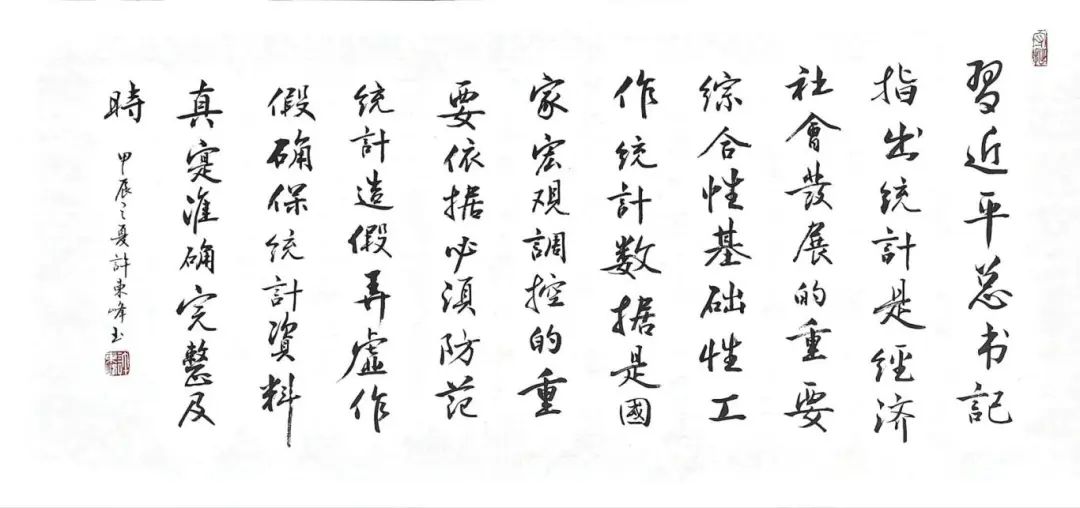 習近平总书記
指出統計是經济
社會發展的重要
綜合性基础性工
作統計数据是國
家宏观調控的重
要依据必須防范
統計造假弄虛作
假确保統計資料
真实准确完整及
時
甲辰之夏許東峰书